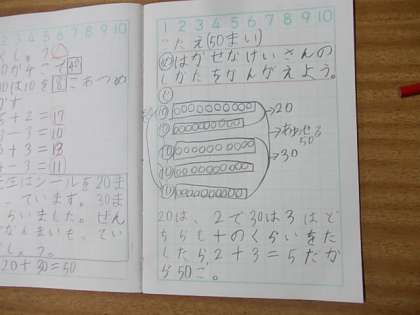 3 4 5 6 7 8 9 10
5+2=17
-3=10
+3=13
-3=11
シールを20ま
ています。30ま
らいました。ぜん
なんまいも、てい
20+30=50
1 2 3 4 5 6 7 8 9 10
こたえ(50まい)
め はかせなけいさんの
しかたをかんがえよう。
⑩ →20
⑩
⑩ あわせる
50
⑩ →30
⑩
20は、2で30は3はど
ちらも十のくらいをた
したら2+3=5だか
ら50こ。